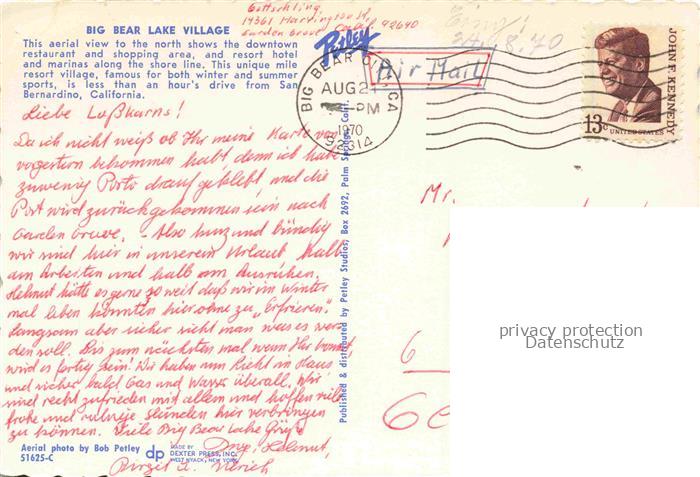 Gottschling
Garden Grove, Calif. 92640
24.8.70
BIG BEAR LAKE VILLAGE
This aerial view to the north shows the downtown
restaurant and shopping area, and resort hotel
and marinas along the shore line. This unique mile
resort village, famous for both winter and summer
sports, is less than an hour's drive from San
Bernardino, California.
Petley
Air Mail
BIG BEAR CITY, CA
AUG 21
PM
1970
92314
JOHN F. KENNEDY
13c
UNITED STATES
Liebe Lußkarns!
Da ich nicht weiß ob Ihr meine Karte von
vorgestern bekommen habt, denn ich habe
zuwenig Porto drauf geklebt und die
Post wird zurückgekommen sein nach
Garden Grove. - Also kurz und bündig
wir sind hier in unserem Urlaub halb
am Arbeiten und halb am Ausruhen.
Helmut hätte es gerne so weit daß wir im Winter
mal leben könnten hier ohne zu "Erfrieren".
langsam aber sicher sieht man was es wer-
den soll. Bis zum nächsten mal wenn Ihr kommt,
wird es fertig sein! Wir haben nun Licht im Haus
und sicher bald Gas und Wasser überall. Wir
sind recht zufrieden mit allem und hoffen viele
frohe und ruhige Stunden hier verbringen
zu können. Viele Big Bear Lake Grüße
Inge, Helmut,
Birgit u. Ulrich
Published & distributed by Petley Studios, Box 2692, Palm Springs, Calif.
Mr.
6
Ge
privacy protection
Datenschutz
Aerial photo by Bob Petley
51625-C
dp
MADE BY
DEXTER PRESS, INC.
WEST NYACK, NEW YORK